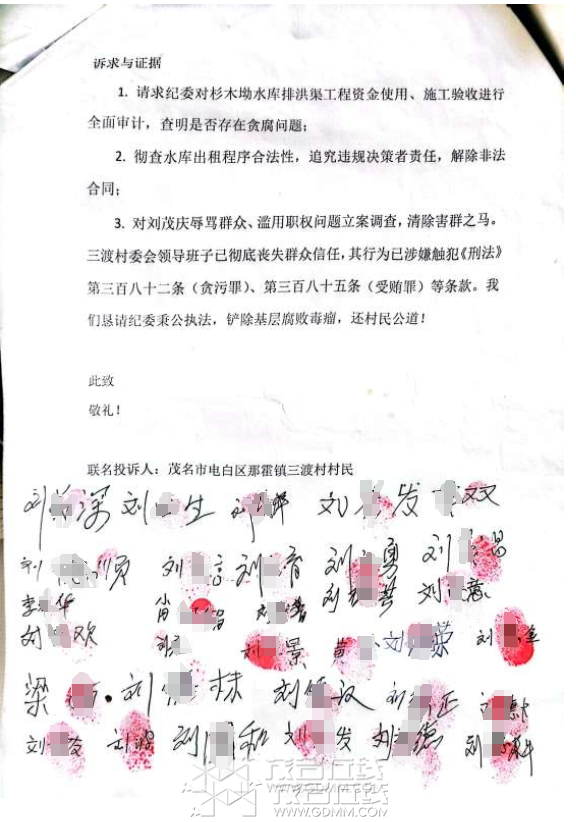 诉求与证据
1. 请求纪委对杉木坳水库排洪渠工程资金使用、施工验收进行
全面审计，查明是否存在贪腐问题；
2. 彻查水库出租程序合法性，追究违规决策者责任，解除非法
合同；
3. 对刘茂庆辱骂群众、滥用职权问题立案调查，清除害群之马。
三渡村委会领导班子已彻底丧失群众信任，其行为已涉嫌触犯《刑法》
第三百八十二条（贪污罪）、第三百八十五条（受贿罪）等条款。我
们恳请纪委秉公执法，铲除基层腐败毒瘤，还村民公道！
此致
敬礼！
联名投诉人：茂名市电白区那霍镇三渡村村民
刘 深 刘 生 刘 刘 发 双
刘 须 刘 刘 育 刘 勇 刘 昌
李 华 刘 刘
刘 欢 刘 景 黄 刘 荣 刘
梁 刘 林 刘 刘 正
刘 刘 刘 和 刘 发 刘 德 刘
茂名在线
WWW.GDMM.COM